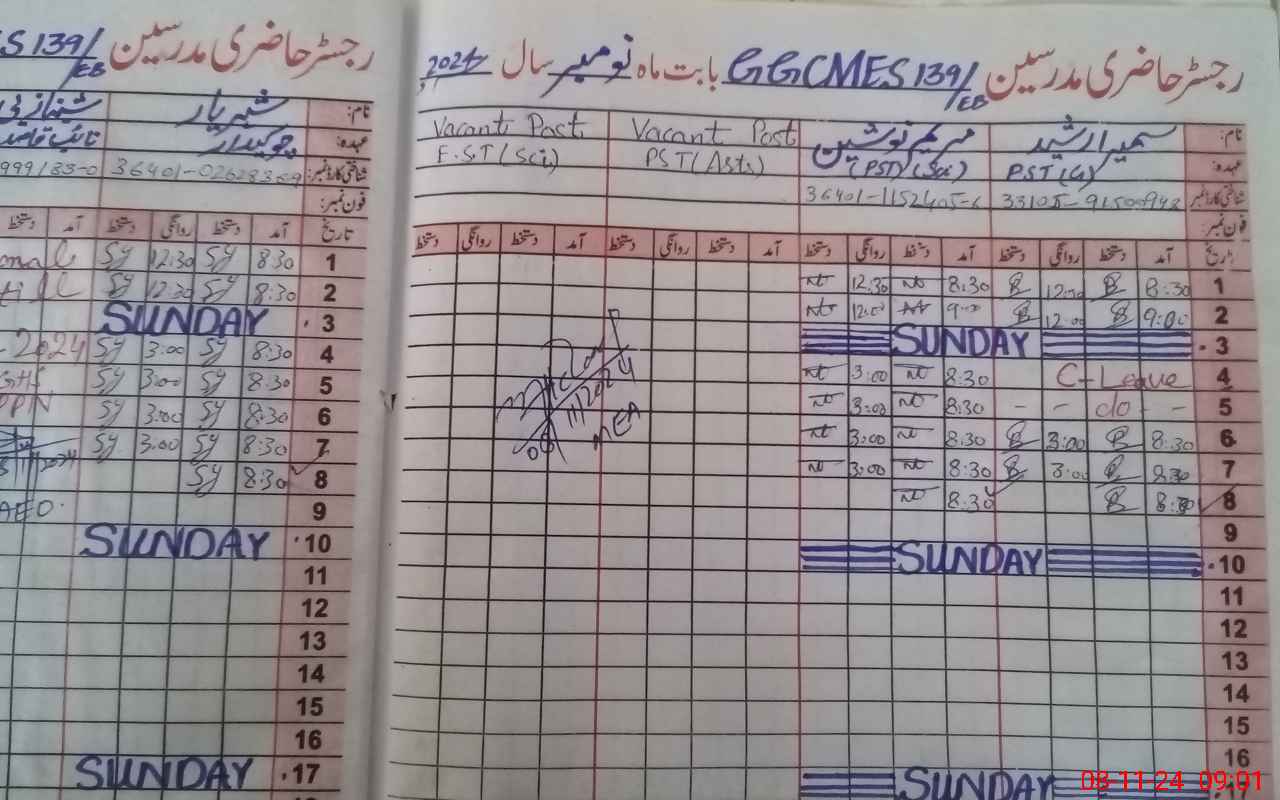 رجسٹر حاضری مدرسین GGCMES 139/EB بابت ماہ نومبر سال 2024
نام: سمیرا رشید مریم نوشین Vacant Post Vacant Post
عہدہ: PST (G) (PST) (Sci) PST (Asts) E.S.T (Sci)
شناختی کارڈ نمبر: 36401-1152405-6
فون نمبر:
تاریخ آمد دستخط روانگی دستخط آمد دستخط روانگی دستخط آمد دستخط روانگی دستخط آمد دستخط روانگی دستخط
1 8:30 12:30 8:30
2 9:00 12:00 9:00 12:00
3 SUNDAY
4 C-Leave 8:30 3:00
5 - - do - - 8:30 3:00
6 8:30 3:00 8:30 3:00
7 8:30 3:00 8:30 3:00
8 8:30 8:30
9
10 SUNDAY
11
12
13
14
15
16
17 SUNDAY
08/11/2024
MEA
رجسٹر حاضری مدرسین S 139/EB
نام: شہریار
عہدہ: چوکیدار نائب قاصد
شناختی کارڈ نمبر:
فون نمبر:
تاریخ آمد دستخط روانگی دستخط آمد دستخط
1 8:30 Sy 12:30 Sy
2 8:30 Sy 12:30 Sy
3 SUNDAY
4 8:30 Sy 3:00 Sy 2024
5 8:30 Sy 3:00 Sy
6 8:30 Sy 3:00 Sy
7 8:30 Sy 3:00 Sy
8 8:30 Sy
9 AEO
10 SUNDAY
11
12
13
14
15
16
17 SUNDAY
08-11-24 09:01